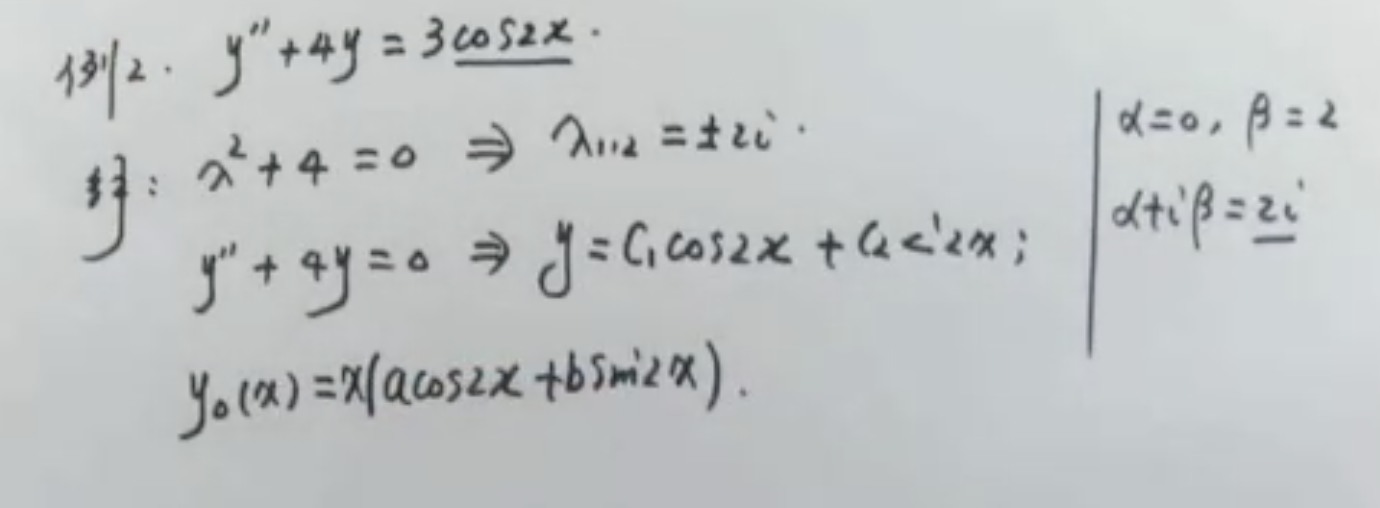 例2. y″+4y=3cos2x.
解: λ²+4=0 ⇒ λ₁,₂=±2i.
y″+4y=0 ⇒ y=C₁cos2x+C₂ 2x;
y₀(x)=x(acos2x+bsin2x).
α=0, β=2
α+iβ=2i